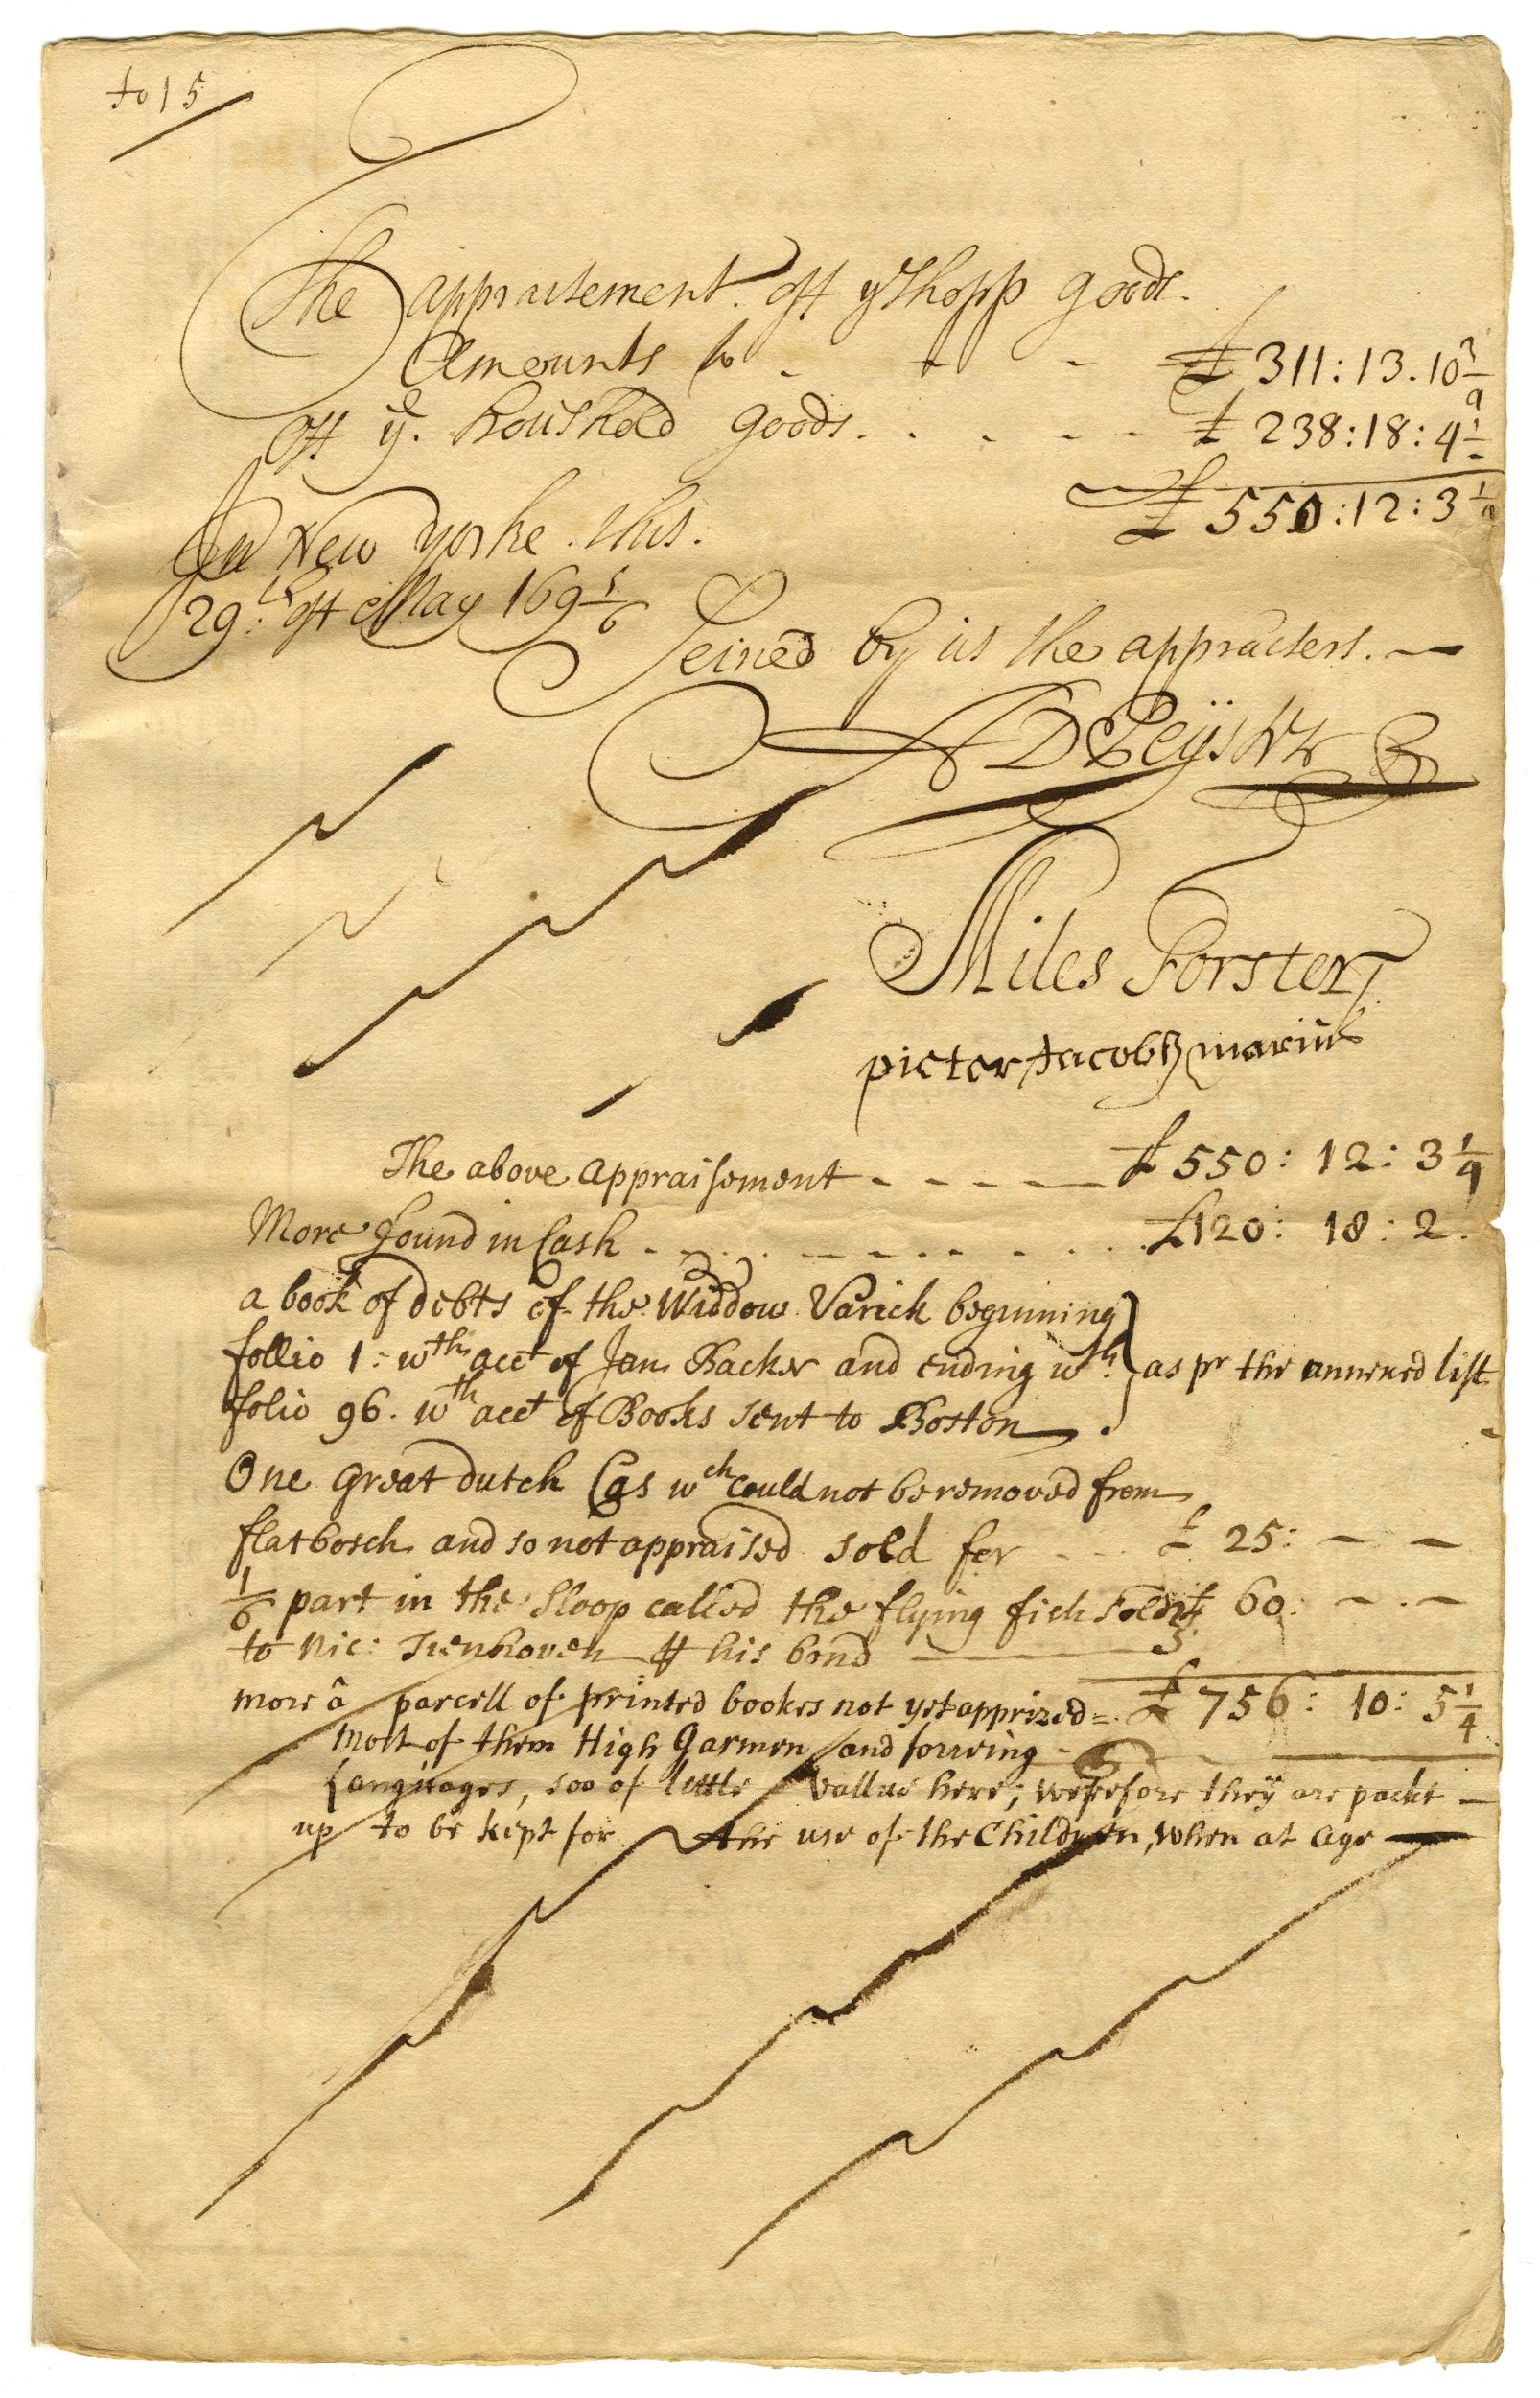 fo 15
The appraisement. off ye Shopp goods.
Amounts to - - - £ 311:13.10 3/4
off ye. houshold goods. . . - - - £ 238:18:4 1/2
£ 550:12:3 1/4
In New Yorke. this.
29th: off May 169 5/6
Seined by us the appraisers. —
A D Peÿster
Miles Forster
pieter Jacobs marius
The above appraisement - - - - — £ 550: 12: 3 1/4
More found in Cash - - . . - - - - - . . . £120: 18: 2.
a book of debts of the Widdow Varick beginning
follio 1: wth acct of Jan Backer and ending wth. } as pr the annexed list
folio 96. wth acct of Books sent to Boston .
One great dutch Cas wch could not be removed from
flatbosch and so not appraised sold for - - - £ 25: — —
1/6 part in the Sloop called the flying fish sold £ 60: — . —
to Nic: Tienhoven his bond ———
more â parcell of printed bookes not yet apprized = . £ 756: 10: 5 1/4
Most of them High Garmen and forreing -
Languages, soo of little vallue here; wherefore theÿ are packt —
up to be kept for the use of the Children, when at age —